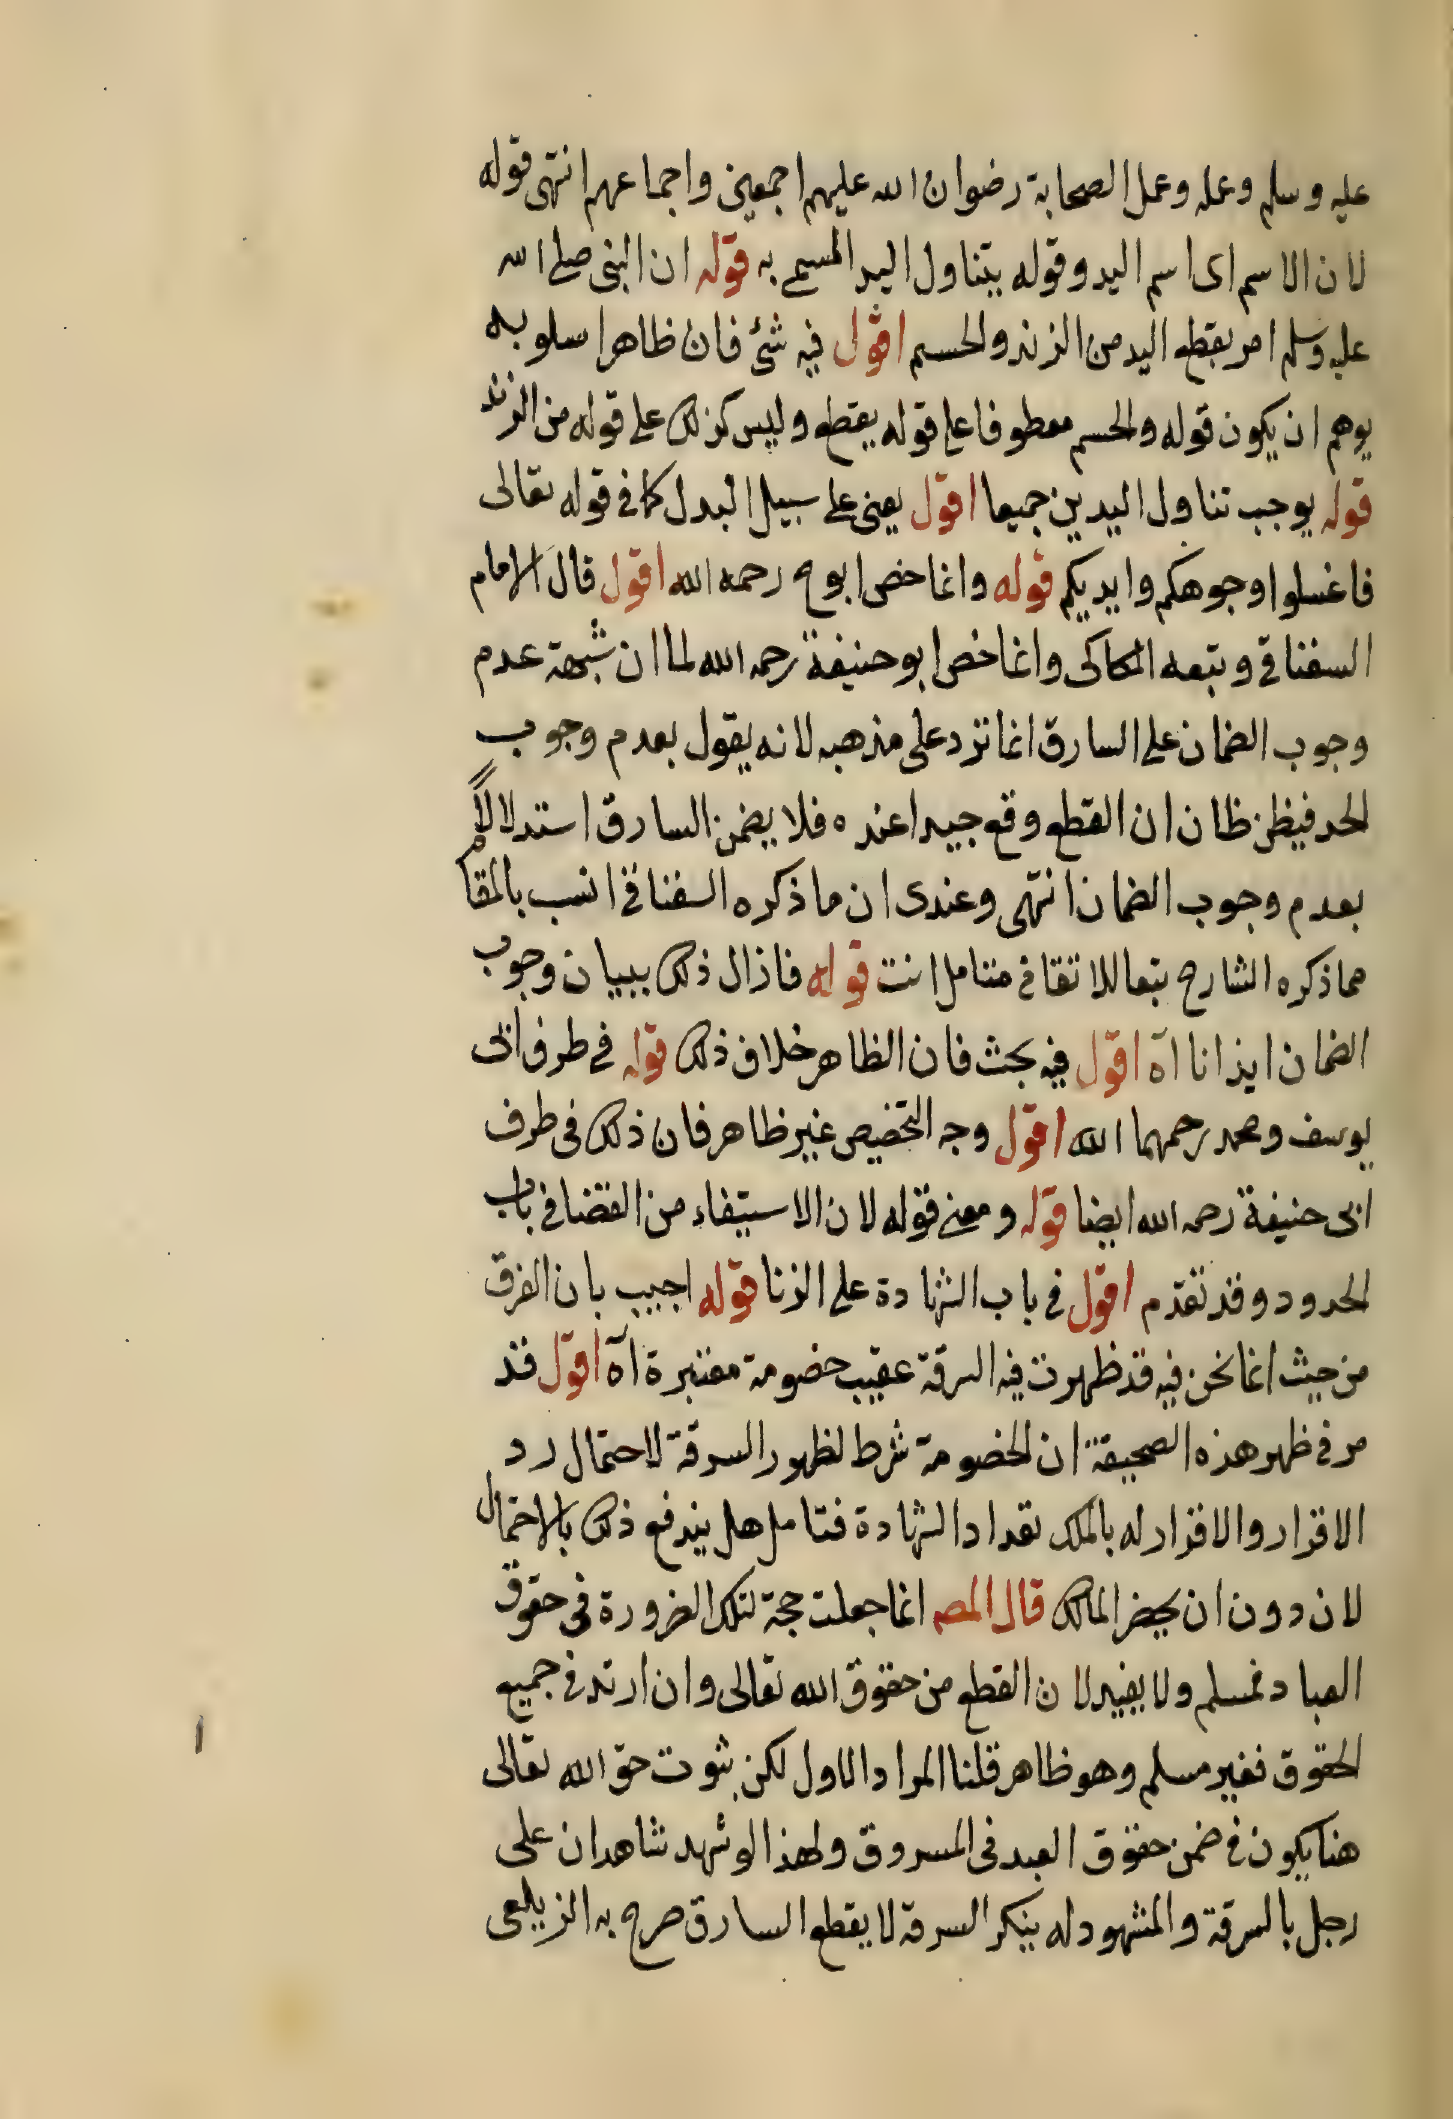 عليه وسلم وعمله وعمل الصحابة رضوان الله عليهم اجمعين واجماعهم انتهى قوله
لان الاسم اى اسم اليد وقوله يتناول اليد المسمى به قوله ان النبى صلى الله
عليه وسلم امر بقطع اليد من الزند والحسم اقول فيه شئ فان ظاهر اسلوبه
يوهم ان يكون قوله والحسم معطوفا على قوله بقطع وليس كذلك على قوله من الزند
قوله يوجب تناول اليدين جميعا اقول يعنى على سبيل البدل كما فى قوله تعالى
فاغسلوا وجوهكم وايديكم قوله وانما خص ابو ح رحمه الله اقول قال الامام
السغناقى وتبعه الكاكى وانما خص ابو حنيفة رحمه الله لما ان شبهة عدم
وجوب الضمان على السارق انما ترد على مذهبه لانه يقول بعدم وجوب
الحد فيظن ظان ان القطع وقع جيدا عنده فلا يضمن السارق استدلالا
بعدم وجوب الضمان انتهى وعندى ان ما ذكره السغناقى انسب بالمقام
مما ذكره الشارح تبعا للاتقانى فتامل انت قوله فازال ذلك ببيان وجوب
الضمان ايذانا اه اقول فيه بحث فان الظاهر خلاف ذلك قوله فى طرف ابى
يوسف ومحمد رحمهما الله اقول وجه التخصيص غير ظاهر فان ذلك فى طرف
ابى حنيفة رحمه الله ايضا قوله ومعنى قوله لان الاستيفاء من القضا فى باب
الحدود وقد تقدم اقول فى باب الشهادة على الزنا قوله اجيب بان الفرق
من حيث انما نحن فيه قد ظهرت فيه السرقة عقيب خصومة معتبرة اه اقول قد
مر فى ظهر هذه الصحيفة ان الخصومة شرط لظهور السرقة لاحتمال رد
الاقرار والاقرار له بالملك بعد اداء الشهادة فتامل هل يندفع ذلك بالاحتمال
لان دون ان يحضر المالك قال المصـ انما جعلت حجة لتلك الضرورة فى حقوق
العباد فمسلم ولا يفيد لان القطع من حقوق الله تعالى وان ارتد فى جميع
الحقوق فغير مسلم وهو ظاهر قلنا المراد الاول لكن ثبوت حق الله تعالى
هنا يكون فى ضمن حقوق العبد فى المسروق ولهذا لو شهد شاهدان على
رجل بالسرقة والمشهود له ينكر السرقة لا يقطع السارق صرح به الزيلعى